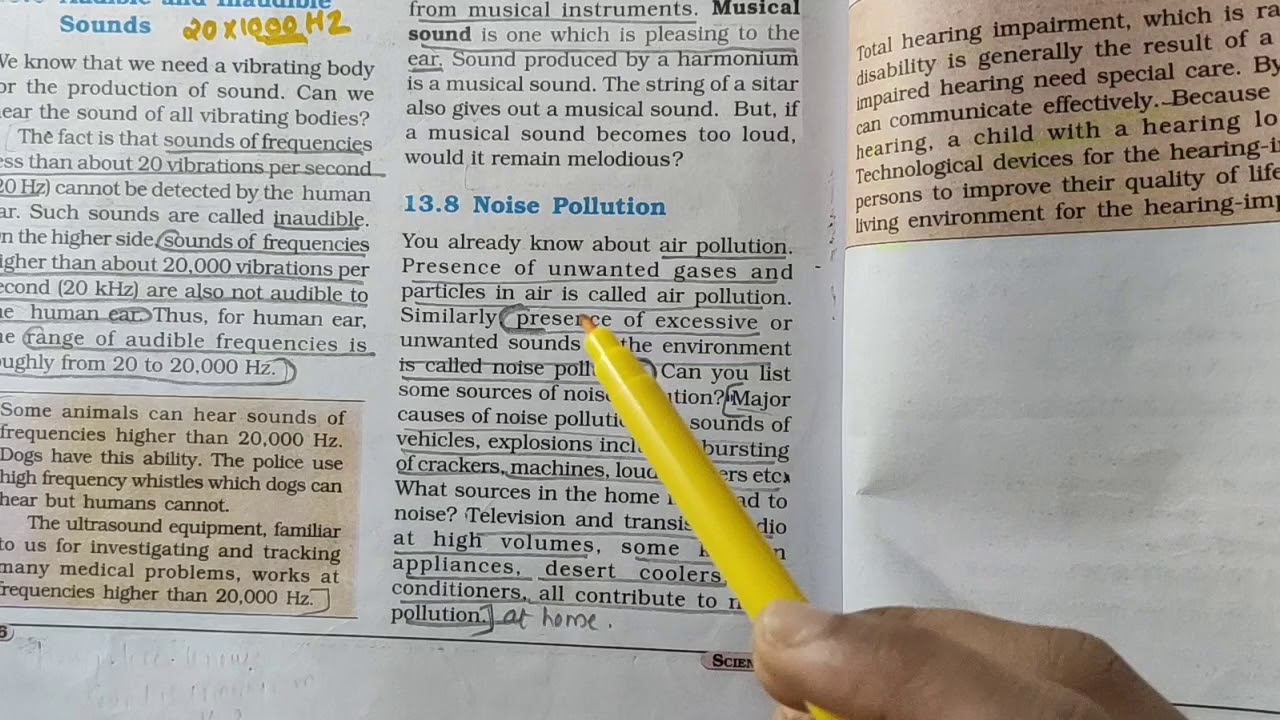 Sounds 20X1000 HZ
We know that we need a vibrating body
or the production of sound. Can we
ear the sound of all vibrating bodies?
The fact is that sounds of frequencies
ess than about 20 vibrations per second
20 Hz) cannot be detected by the human
ar. Such sounds are called inaudible.
n the higher side, sounds of frequencies
igher than about 20,000 vibrations per
econd (20 kHz) are also not audible to
he human ear. Thus, for human ear,
he range of audible frequencies is
oughly from 20 to 20,000 Hz.
Some animals can hear sounds of
frequencies higher than 20,000 Hz.
Dogs have this ability. The police use
high frequency whistles which dogs can
hear but humans cannot.
The ultrasound equipment, familiar
to us for investigating and tracking
many medical problems, works at
frequencies higher than 20,000 Hz.
6
from musical instruments. Musical
sound is one which is pleasing to the
ear. Sound produced by a harmonium
is a musical sound. The string of sitar
also gives out a musical sound. But, if
a musical sound becomes too loud,
would it remain melodious?
13.8 Noise Pollution
You already know about air pollution.
Presence of unwanted gases and
particles in air is called air pollution.
Similarly, presence of excessive or
unwanted sounds the environment
is called noise poll Can you list
some sources of nois ution? Major
causes of noise polluti sounds of
vehicles, explosions incl bursting
of crackers, machines, loud ers etc.
What sources in the home ad to
noise? Television and transis dio
at high volumes, some k n
appliances, desert coolers,
conditioners, all contribute to n
pollution. at home.
SCIEN
Total hearing impairment, which is ra
disability is generally the result of a
impaired hearing need special care. By
can communicate effectively. Because
hearing, a child with a hearing lo
Technological devices for the hearing-i
persons to improve their quality of life
living environment for the hearing-imp